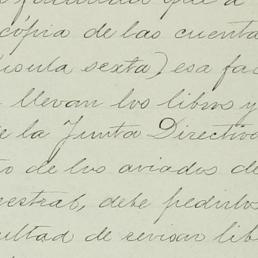 que a
cópia de las cuenta
ísula sexta) esa fac
llevan los libros y
e la Junta Directiva
to de los aviados de
estral, debe pedirlos
ultad de revisar lib